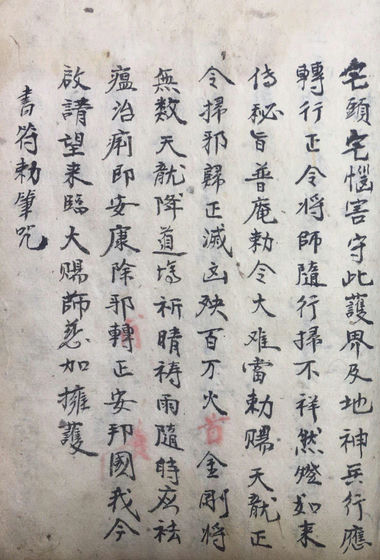 宅頭宅惱害守此護界及地神兵行應
轉行正令將師隨行掃不祥然燈如来
傳秘旨普庵勅令大难當勅賜天龍正
令掃邪歸正滅凶殃百万火首金剛將
無数天龍降道塲祈晴祷雨隨時应祛
瘟治痢即安康除邪轉正安邦國我今
啟請望来臨大賜師慈加擁護
書符勅筆咒